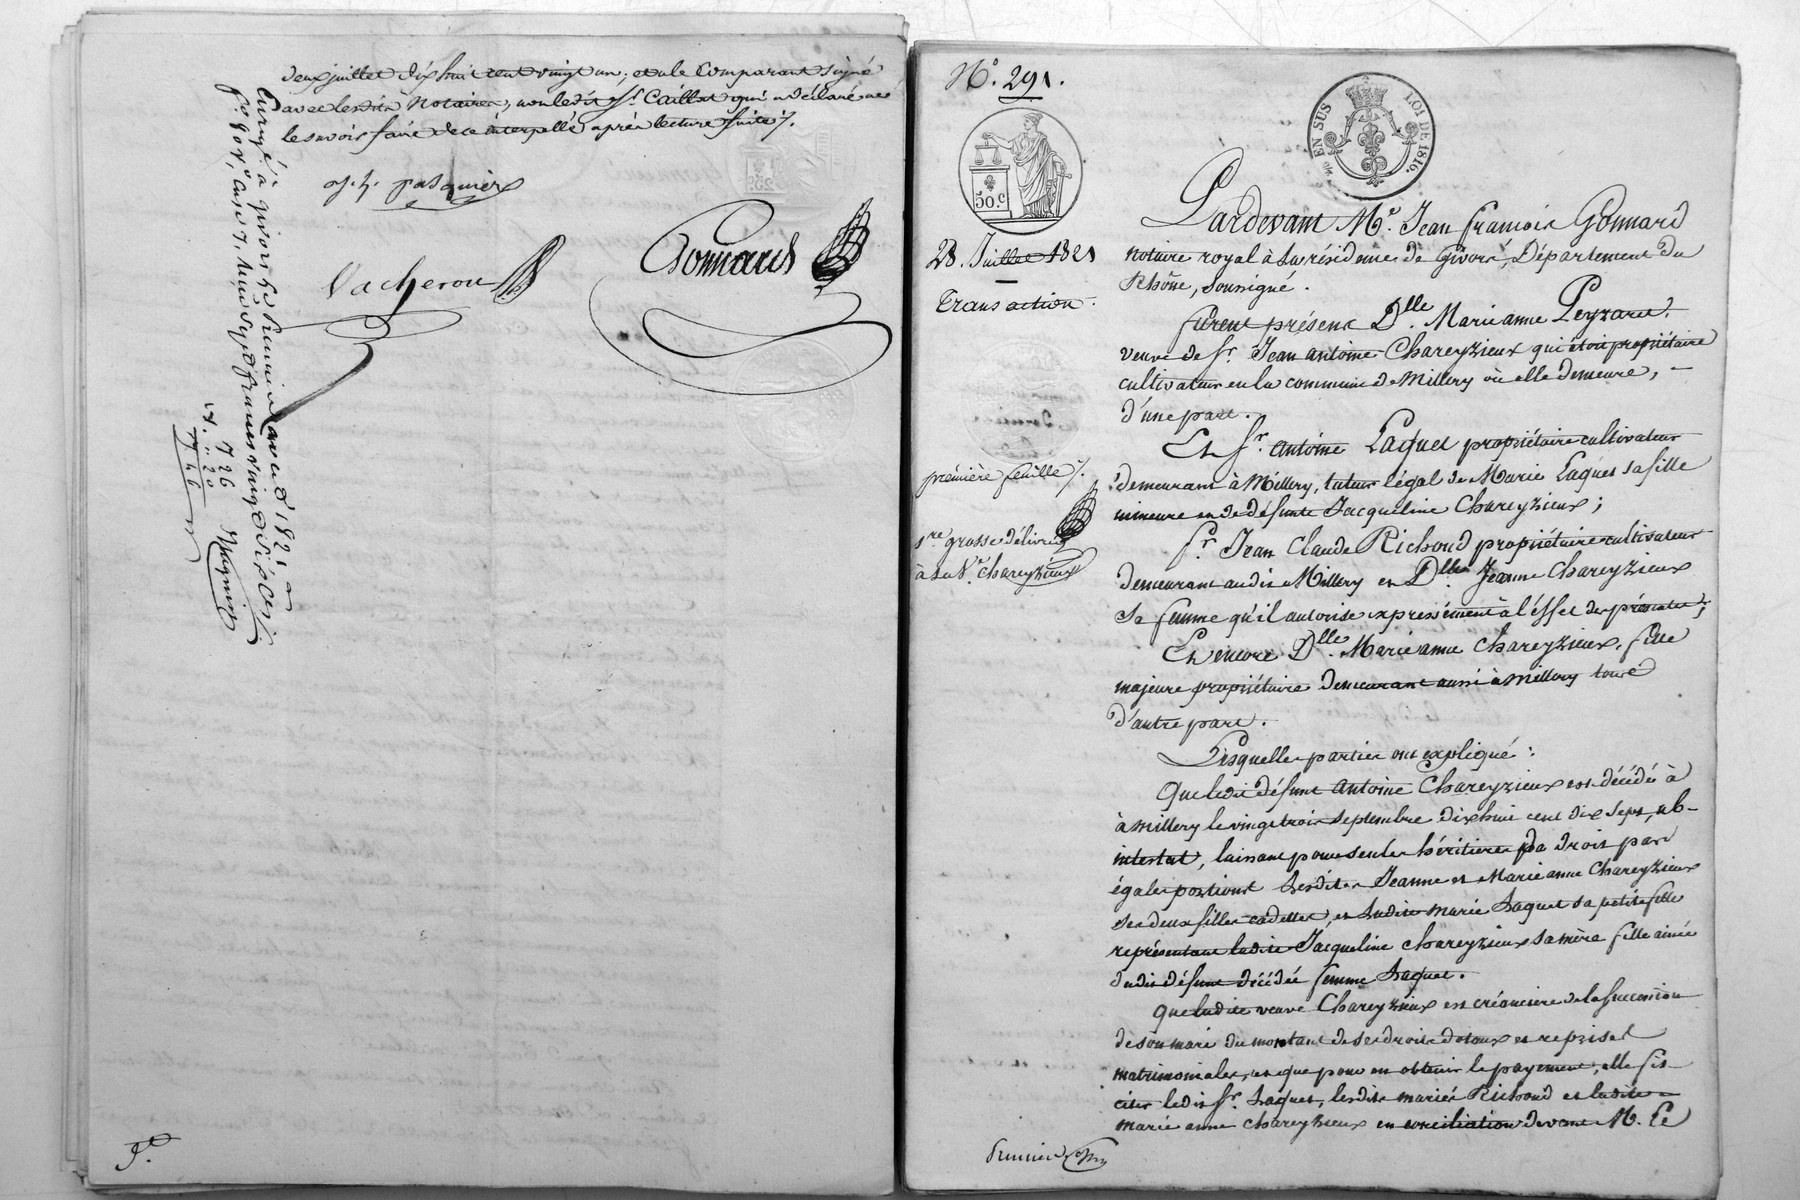 deux juillet dix huit cent vingt un; et a le comparant signé
avec lesdits Notaires, non ledit Sr. Caillat qui a déclaré ne
le savoir faire de ce interpellé après lecture faite ./.
j. h. pasquier
Vacheron
Gonnard
Enregé. à givors le premier aout 1821
fo. 90 Vo. Case 7. Reçu Sept francs vingt six cent.
7. 26
" .. 20
7 46
Nº. 291.
EN SUS
LOI DE 1816.
50.c
28. Juillet 1821
Transaction.
première feuille ./.
1re grosse délivrée
à la Ve. Chareyzieux
Pardevant Me. Jean François Gonnard
notaire royal à la résidence de Givors, Département du
Rhône, soussigné.
furent présens Dlle. Marie anne Peyzaret.
veuve de Sr. Jean antoine Chareyzieux qui étoit propriétaire
cultivateur en la commune de Millery où elle demeure, -
d'une part.
Et Sr. antoine Laquet propriétaire cultivateur
demeurant à Millery, tuteur légal de Marie Laquet sa fille
mineure et de défunte Jacqueline Chareyzieux;
Sr. Jean Claude Richoud propriétaire cultivateur
demeurant audit Millery et Dlle. Jeanne Chareyzieux
sa femme qu'il autorise expressément à l'effet des présentes;
Et encore Dlle. Marie anne Chareyzieux, fille
majeure propriétaire demeurant aussi à Millery tous
d'autre part.
Lesquelles parties ont expliqué:
Que ledit défunt antoine Chareyzieux est décédé à
à Millery le vingt trois septembre dix huit cent dix sept, ab-
intestat, laissant pour seules héritières de droit par
égales portions lesdites Jeanne et Marie anne Chareyzieux
ses deux filles cadettes, et ladite marie Laquet sa petite fille
représentant ladite Jacqueline Chareyzieux sa mère fille ainée
dudit défunt décédée femme Laquet.
Que ladite veuve Chareyzieux est créancière de la succession
de son mari du montant de ses droits dotaux et reprises
matrimoniales, et que pour en obtenir le payement, elle fit
citer ledit Sr. Laquet, lesdits mariés Richoud et ladite
marie anne Chareyzieux en conciliation devant M. Le